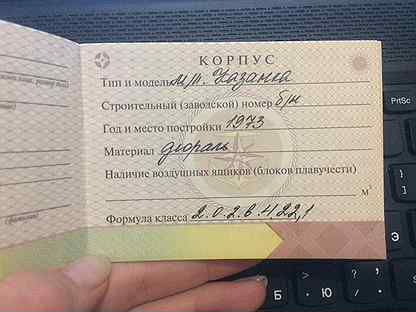 КОРПУС
Тип и модель м/л. Казанка
Строительный (заводской) номер б/н
Год и место постройки 1973
Материал дюраль
Наличие воздушных ящиков (блоков плавучести)
м³
Формула класса 2.0.2.6.4 22,1
PrtSc
Э
Б
Ю
?